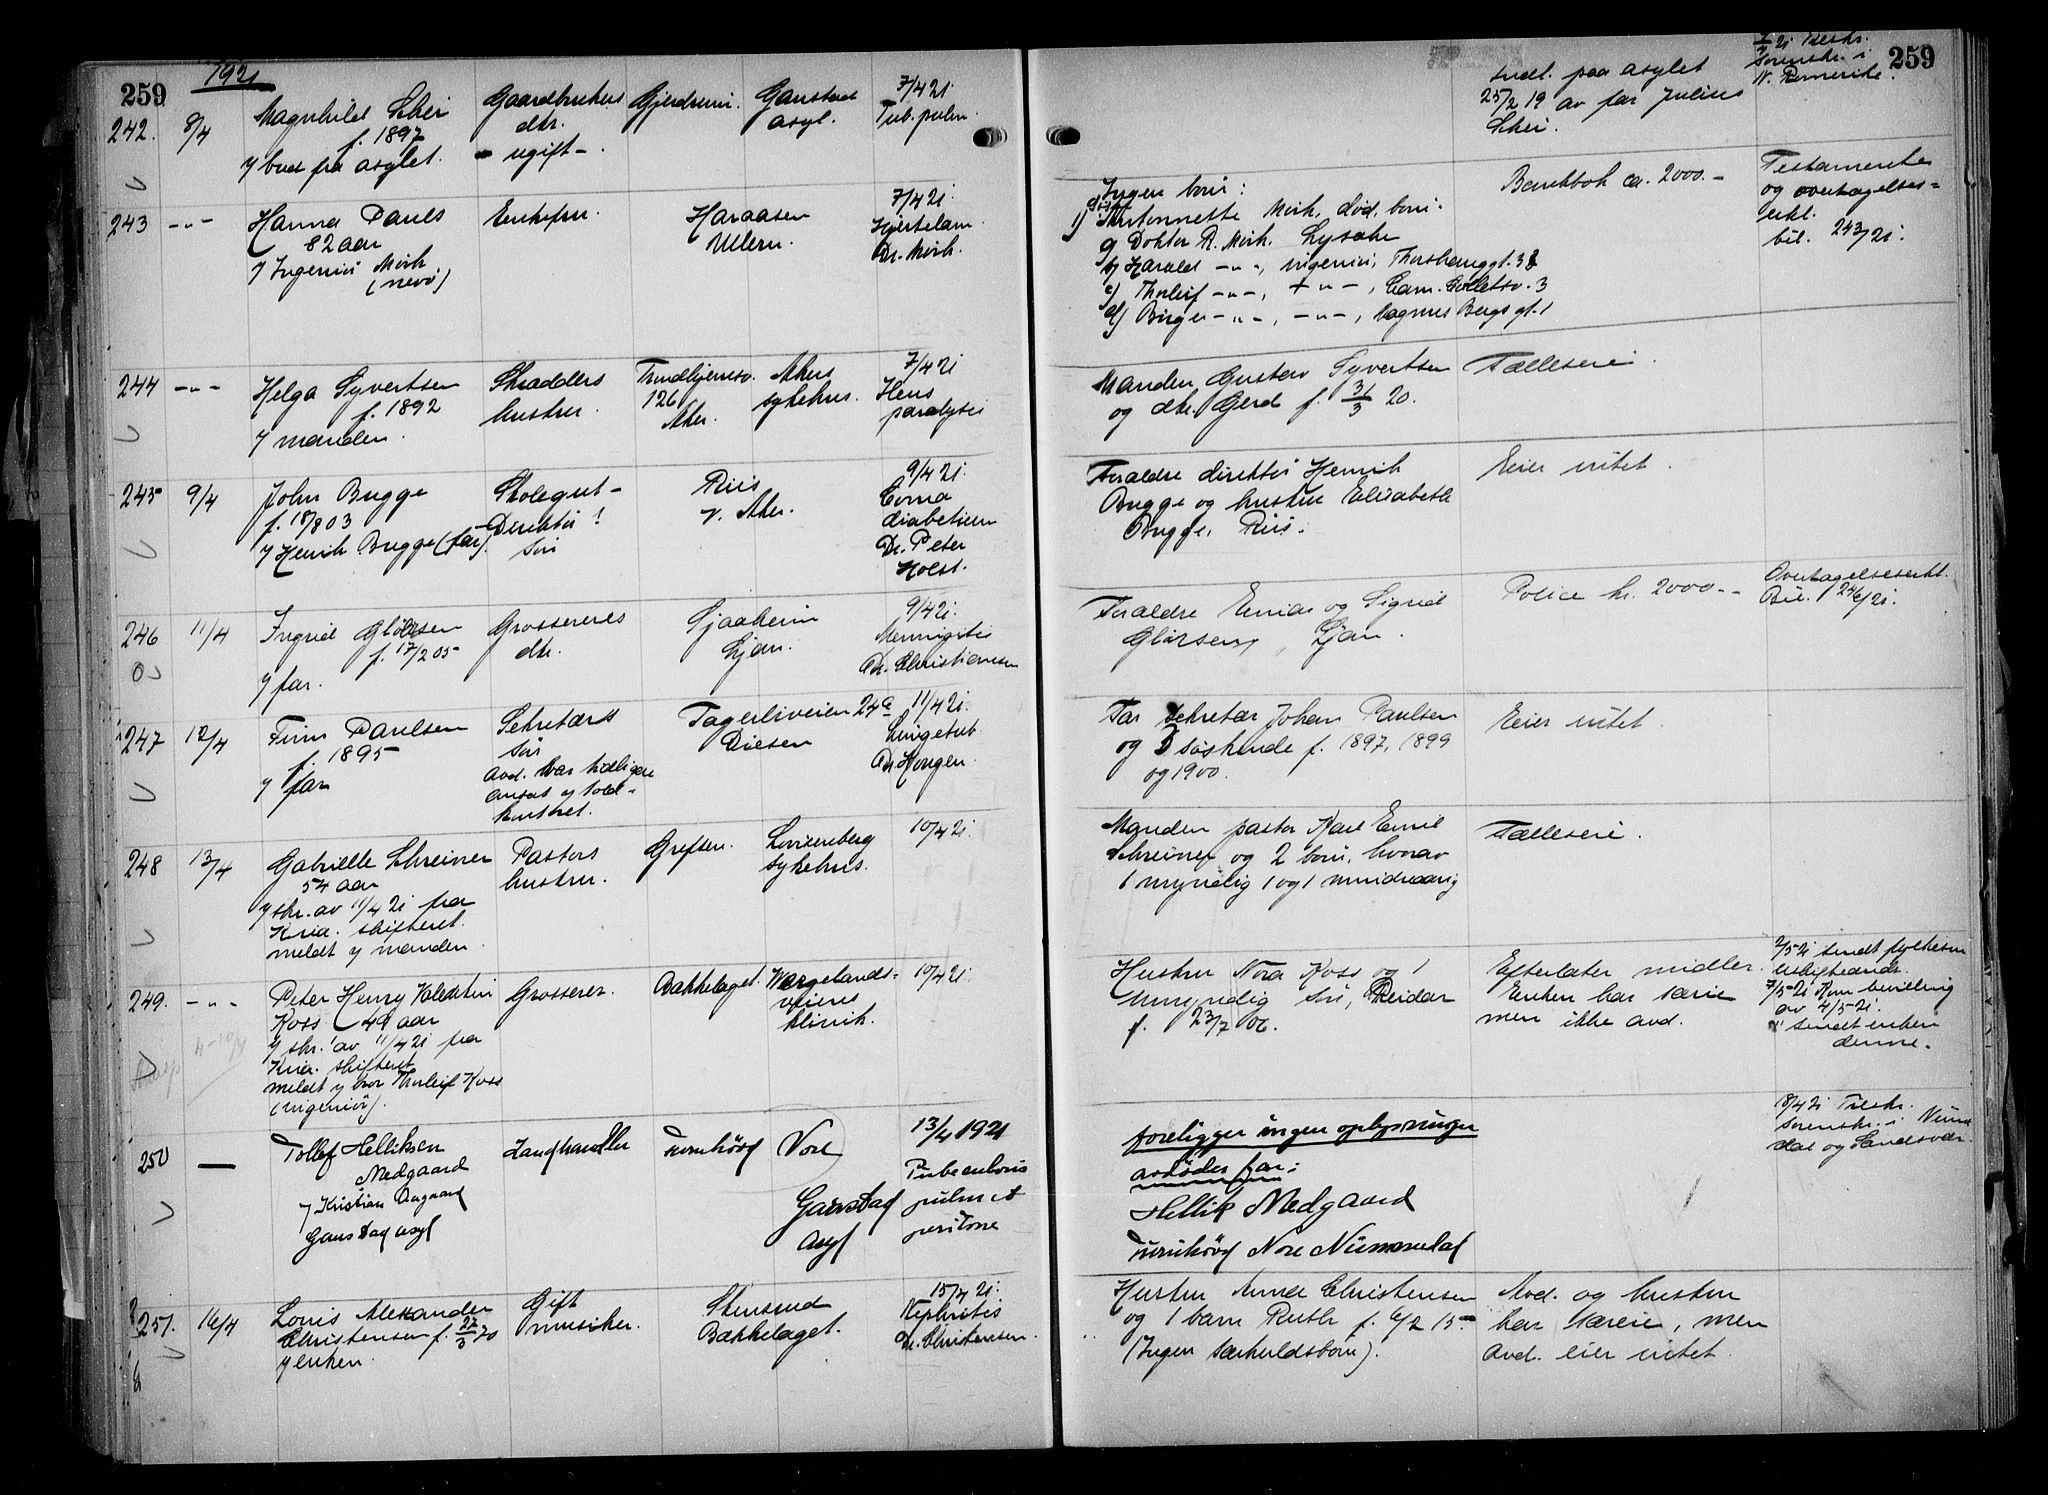 259
1921
242. 8/4 Magnhild Schei Gaardbrukers Gjerdrum. Gaustad 7/4 21.
f. 1897 dtr. asyl. Tub. pulm.
v/ bud fra asylet. ugift -
243 -"- Hanna Pauls Enkefru. Haraasen 7/4 21.
82 aar Ullern. Hjertelam.
v/ Ingeniør Mørk Dr. Mørk.
(nevø)
244 -"- Helga Syvertsen Skrædders Trondhjemsv. Akers 7/4 21
f. 1892 hustru. 126 sykehus.
v/ manden. Aker. paralyse
245 9/4 John Bugge Skolegut - Riis 9/4 21.
f. 18/8 03 Direktør ! v. Aker. Coma
v/ Henrik Bugge (far). søn diabeticum
Dr. Peter
Holst.
246 11/4 Ingrid Glørsen Grosserers 9/4 21.
f. 17/2 05 dtr. Ljan. Meningitis
v/ far. Dr. Christiansen
247 12/4 Finn Paulsen Sekretærs Fagerliveien 24a 11/4 21.
f. 1895 søn Disen Lungetub.
v/ far avd. var tidligere Dr. Hougen.
ansat v/ told-
kontoret.
248 13/4 Gabrielle Schreiner Pastors Grefsen. Lovisenberg 10/4 21.
54 aar hustru. sykehus.
v/ skr. av 11/4 21 fra
Kria. skifteret.
meldt v/ manden.
249. -"- Peter Henry Valentin Grosserer. Bækkelaget. Wergelands- 10/4 21
Koss 49 aar veiens
v/ skr. av 11/4 21 fra klinik.
Kria. skifteret
meldt v/ bror Thorleif Koss
(ingeniør).
250 — Tollef Helliksen Landhandler Nore 13/4 1921
Medgaard Tuberculosis
v/ Kristian Aagaard Gaustad pulm et
Gaustad asyl Asyl peritone
251. 16/4 Louis Alexander Gift Stensrud 15/4 21.
Christensen f. 27/3 70 musiker. Bækkelaget. Nephritis
v/ enken. Dr. Christensen.
259
Indl. paa asylet Tilskr.
25/2 19 av far Julius Sorenskr. i
Schei. N. Romerike.
Ingen børn: Bankbok ca. 2000.- Testamente
1) Antonnette Mørk, død, børn. og overtagelses-
a) Doktor R. Mørk. Lysaker erkl.
b) Harald -"-, ingeniør, bil. 243/21.
c) Thorleif -"-, -"-, Cam. Colletsv. 3
d) Birger -"-, -"-, Magnus Bergs gt. 1
Manden Gustav Syvertsen Fælleseie.
og dtr. Gerd f. 31/3 20.
Forældre direktør Henrik Eier intet.
Bugge og hustru Elisabeth
Bugge, Riis.
Forældre Einar og Sigrid Police kr. 2000.- Overtagelseserkl.
Glørsen, Ljan. Bil. 246/21.
Far sekretær Johan Paulsen Eier intet.
og 3 søskende f. 1897, 1899
og 1900.
Manden pastor Karl Emil Fælleseie.
Schreiner og 2 børn, hvorav
1 myndig og 1 mindreaarig
Hustru Nora Koss og 1 Efterlater midler. 2/5 21 sendt
umyndig søn, Reidar Enken har særeie
f. 23/7 06. men ikke avd. 7/5 21 Kom bevilling
av 4/5 21.
sendt enken
denne.
foreligger ingen oplysninger 18/4 21 Tilskr.
avdødes far: Sorenskr. i Numedal og Sandsvær
Hellik Medgaard
Nore Numedal
Hustru Anna Christensen Avd. og hustru
og 1 barn Ruth f. 6/2 15 har særeie, men
(Ingen særkuldsbørn). avd. eier intet.